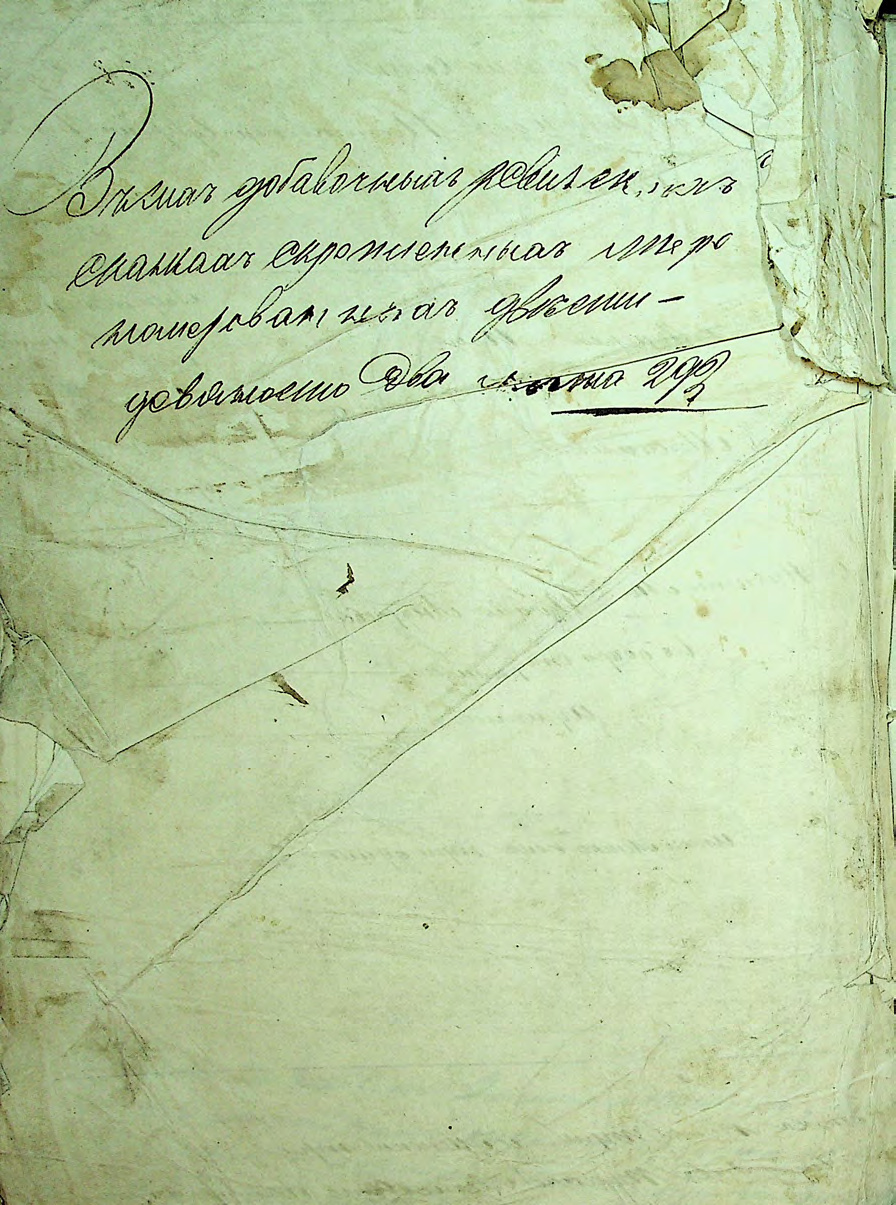 Въ сихъ добавочныхъ ревизскихъ
сказкахъ скрепленныхъ и про
номерованныхъ двести
девяносто два листа 292